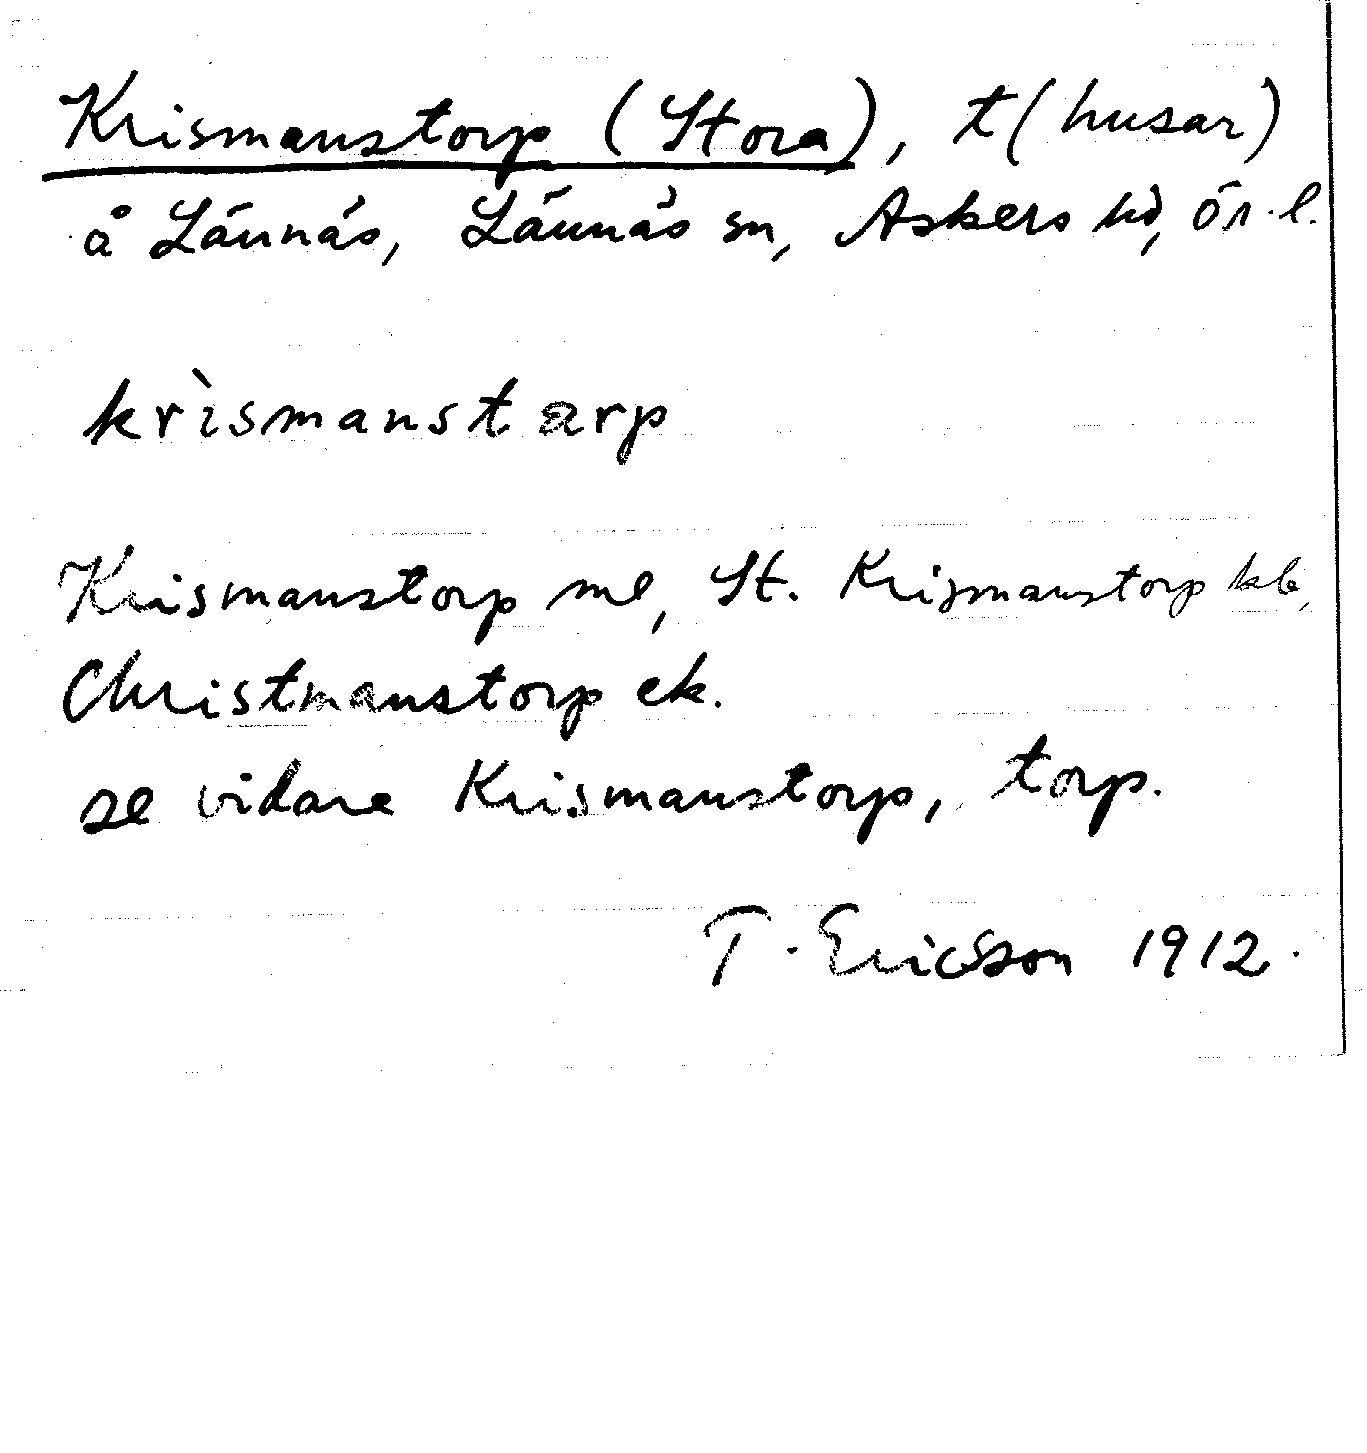 Krismanstorp (Stora), t(husar)
å Lännäs, Lännäs sn, Askers hd, Ör. l.
krìsmanstarp
Krismanstorp ml, St. Krismanstorp kb,
Christmanstorp ek.
se vidare Krismanstorp, torp.
T. Ericsson 1912.